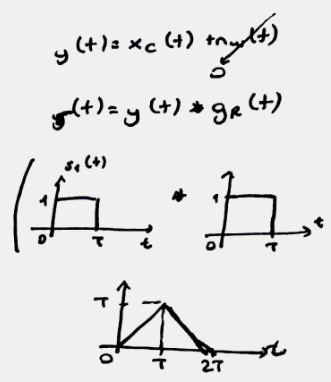 y(t) = x_c(t) + n_w(t)
0
(t) = y(t) * g_R(t)
s_1(t)
1
0 T t
*
1
0 T t
T
0 T 2T t